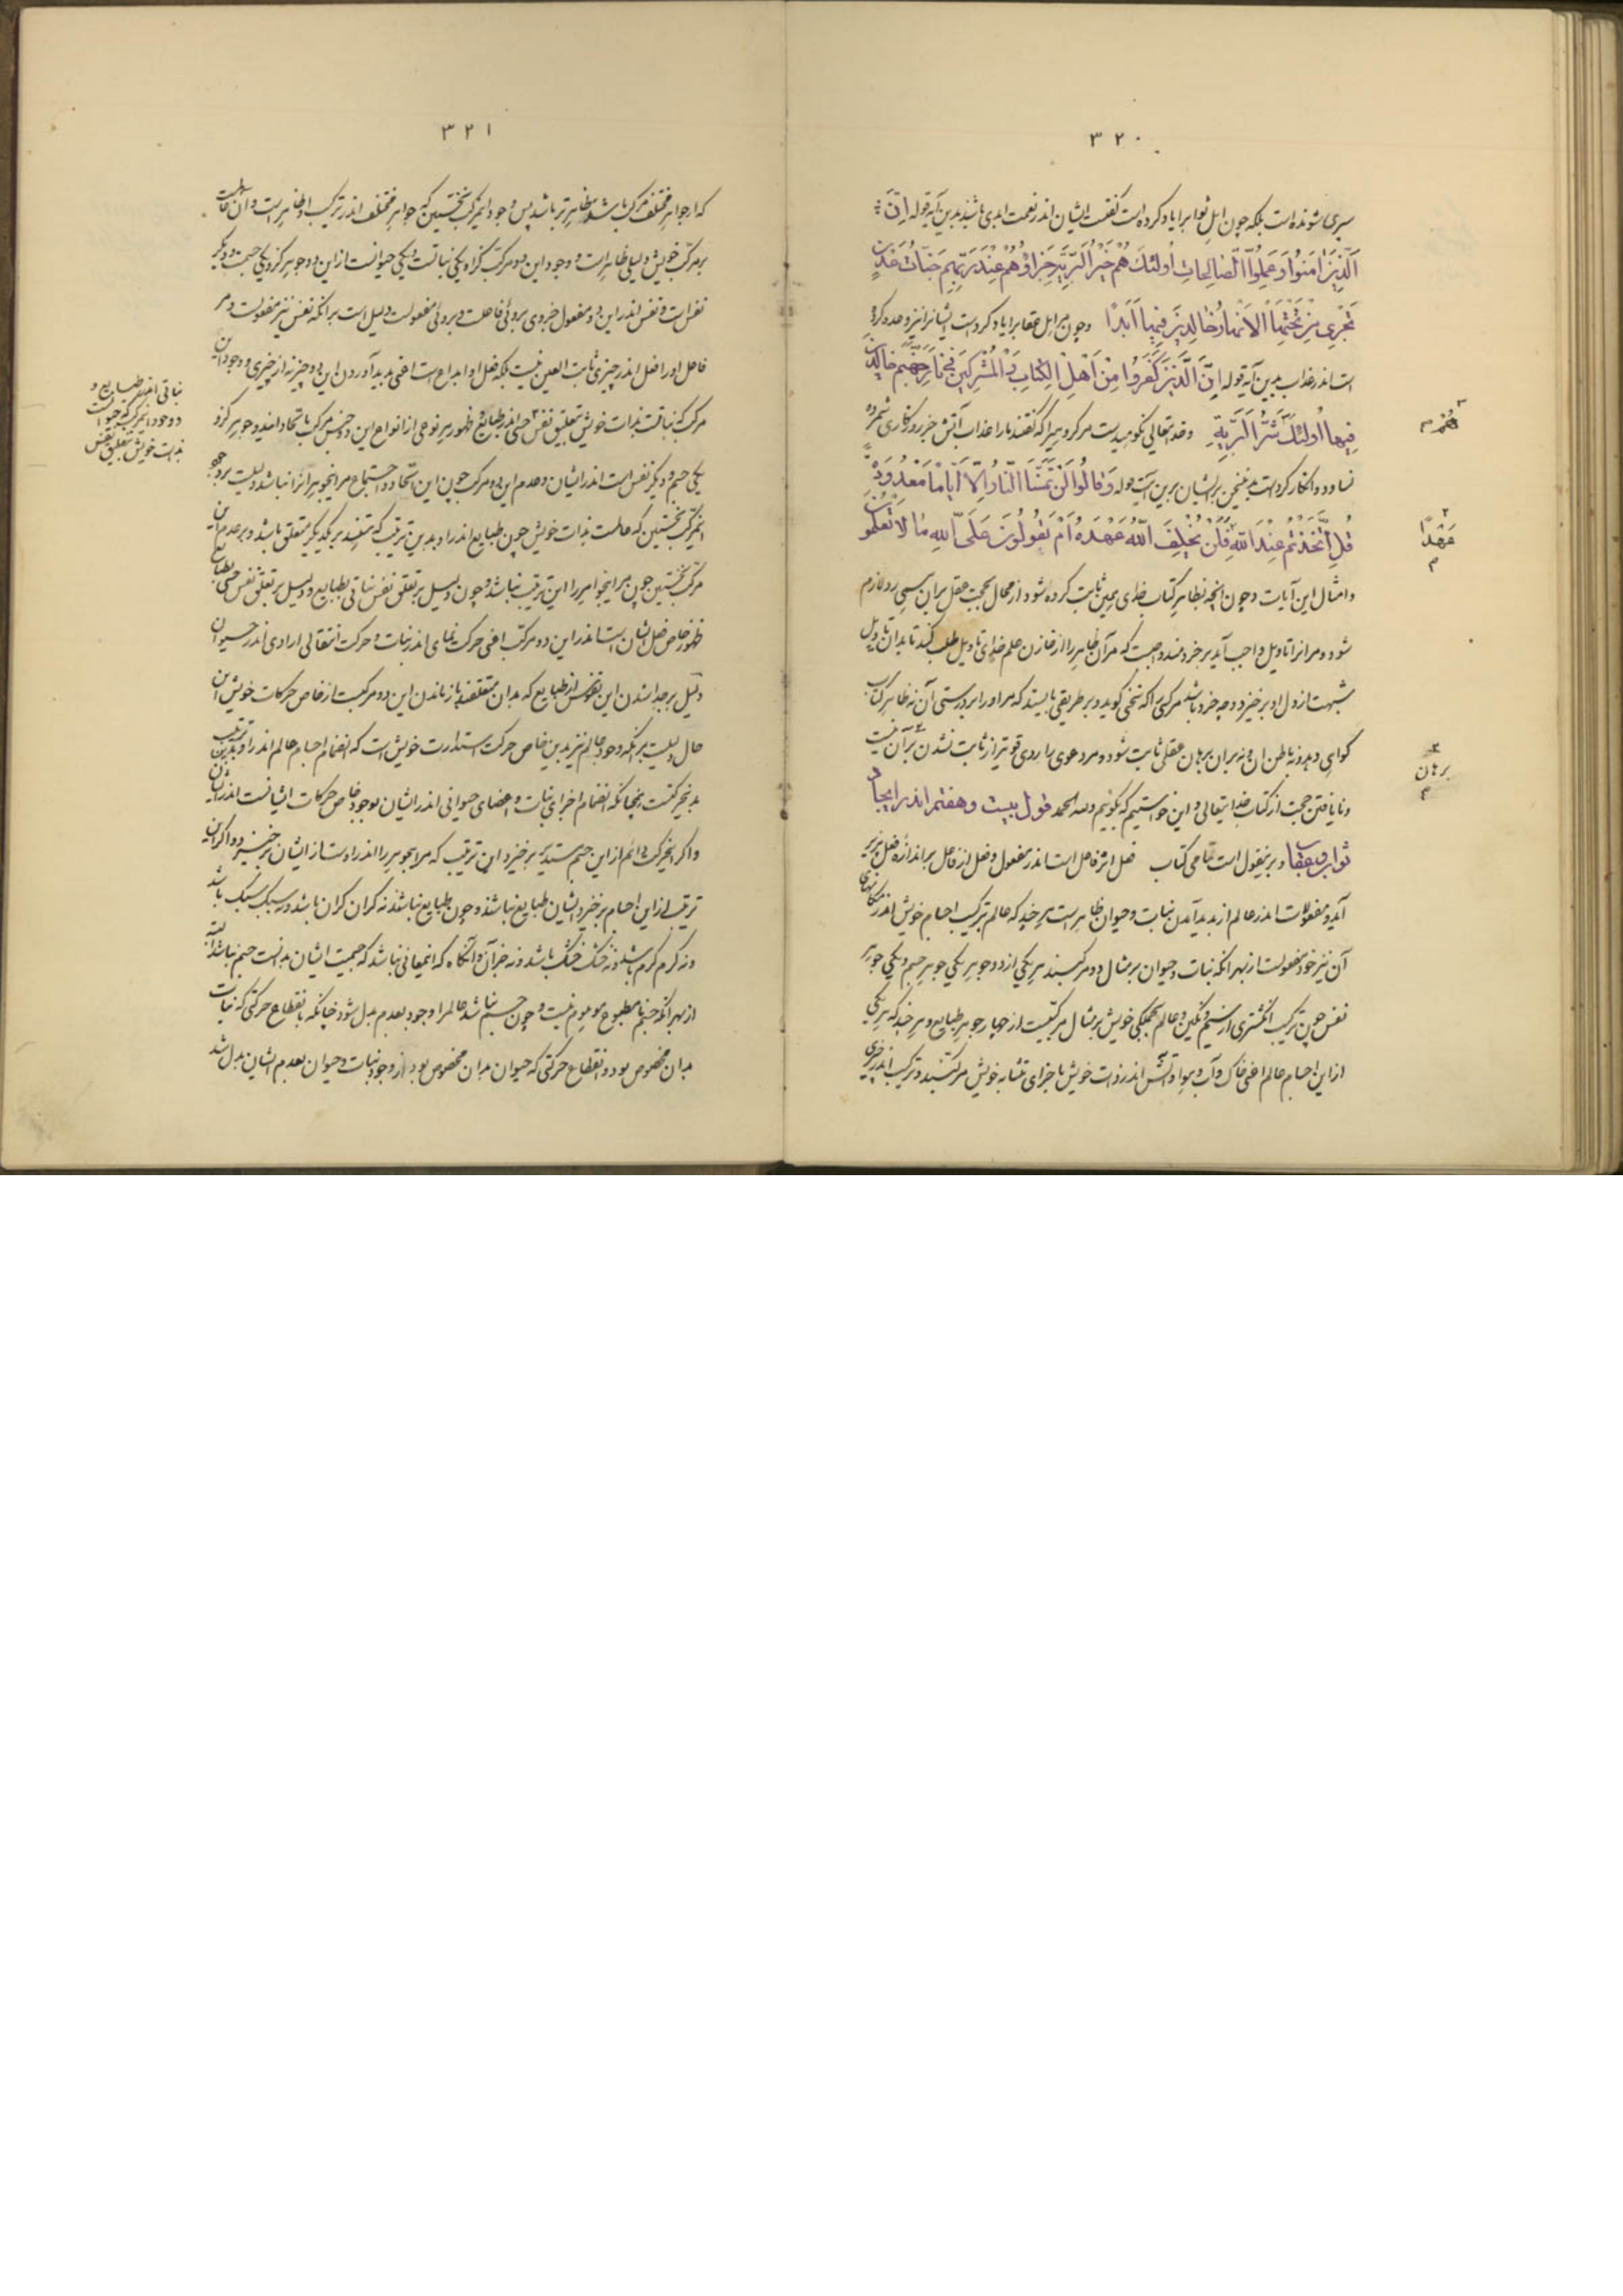 ٣٢٠
سپری شونده است بلکه چون اهل ثواب را یاد کرده است گفتست ایشان اندر نعمت ابدی باشند بدین آیه قوله اِنَّ
اَلَّذِینَ اٰمَنُوا وَ عَمِلُوا الصّالِحاتِ اُولئِكَ هُمْ خَیْرُ الْبَرِیَّةِ جَزاؤُهُمْ عِنْدَ رَبِّهِمْ جَنّاتُ عَدْنٍ
تَجْرِی مِنْ تَحْتِهَا الْاَنْهارُ خالِدِینَ فِیها اَبَدًا وچون مر اهل عقاب را یاد کردست ایشانرا نیز وعده کرده
است اندر عذاب بدین آیه قوله اِنَّ الَّذِینَ كَفَرُوا مِنْ اَهْلِ الْكِتابِ وَ الْمُشْرِكِینَ فِی نارِ جَهَنَّمَ خالِدِینَ
فِیها اُولئِكَ هُمْ شَرُّ الْبَرِیَّةِ وخدایتعالی نکوهیدست مر گروهیرا که گفتند ما را عذاب آتش جز روزگاری شمرده
نساود و انکار کردست بدینسخن بر ایشان برین آیت قوله وَ قالُوا لَنْ تَمَسَّنَا النّارُ اِلّا اَیّامًا مَعْدُودَةً
قُلْ اَتَّخَذْتُمْ عِنْدَ اللّهِ فَلَنْ یُخْلِفَ اللّهُ عَهْدَهُ اَمْ تَقُولُونَ عَلَی اللّهِ ما لا تَعْلَمُونَ
وامثال این آیات وچون آنچه بظاهر کتاب خدای همین ثابت کرده شود از محال بحجت عقل بر آن سپس رد لازم
شود ومر انرا تاویل واجب آید بر خردمند واجبست که مر آن ظاهر را از خازن علم خدای تاویل طلب کند تا بدان تاویل
شبهت از دل او بر خیزد و چه خرد باشد مر کسی را که سخنی گوید و بر طریقی بایستد که مر او را بر درستی آن نه ظاهر کتاب
گواهی دهد و نه باطن ان و نه بران برهان عقلی ثابت شود و مر دعوی را ردی قویتر از ثابت نشدن بر آن نیست
ونا یافتن حجت از کتاب خدایتعالی و این خواستیم که بگوئیم و لله الحمد قول بیست وهفتم اندر ایجاب
ثواب وعقاب و بر ینقول است تمامی کتاب فعل اثر فاعل است اندر مفعول وفعل از فاعل بر اندازه فعل پذیر
آید و مفعولات اندر عالم از پدید آمدن نبات وحیوان ظاهر است هر چند که عالم بترکیب اجسام خویش اندر مکانهای
آن نیز خود مفعولست از بهر انکه نبات و حیوان بر مثال دو مرکبند هر یکی از دو جوهر یکی جوهر جسم و یکی جوهر
نفس چون ترکیب انگشتری از سیم ونگین و عالم بجملگی خویش بر مثال مرکبیست از چهار جوهر طبایع و هر چند که هر یکی
از این اجسام عالم اعنی خاک و آب و هوا و آتش اندر ذات خویش باجزای متشابه خویش مرکبند وترکیب اندر چیزی
٢
هُمْ
م
٢
عَهْدًا
م
٢
برهان
م
٣٢١
که از جواهر مختلف مرکب باشد ظاهر تر باشد پس وجود این مرکب نخستین که جواهر مختلف اندر ترکیب او ظاهر است و آن عالمست
بر مرکب خویش دلیلی ظاهر است و وجود این دو مرکب کز او یکی نباتست و یکی حیوانست از این دو جوهر کز و یکی جسمست و دیگر
نفس است و نفس اندر این دو مفعول خردی بروئی فاعلست و بروئی مفعولست دلیل است بر انکه نفس نیز مفعولست و مر
فاعل او را فعل اندر چیزی ثابت العین نیست بلکه فعل او ابداع است اعنی پدید آوردن این دو چیز نه از چیزی و وجود این
مرکب که نباتست بذات خویش بتعلیق نفس حسی اندر طبایع و ظهور هر نوعی از انواع این دو جنس مرکب باتحاد امد دو جوهر کزو
یکی جسم و دیگر نفس است اندر ایشان و عدم این دو مرکب چون این اتحاد و اجتماع مر اینجوهر انرا نباشد دلیلست بر وجود
اینمرکب نخستین که عالمست بذات خویش چون طبایع اندر او بدین ترتیب که هستند بر یکدیگر متعلق باشد و بر عدم این
مرکب نخستین چون مر اینجواهر را این ترتیب نباشد و چون دلیل بر تعلق نفس نباتی بطبایع و دلیل بر تعلق نفس حسی بطبایع
ظهور خاص فعل ایشان است اندر این دو مرکب اعنی حرکت نمای اندر نبات و حرکت انتقالی ارادی اندر حیوان
دلیل بر جدا شدن این نفوس از طبایع که بدان متعلقند باز ماندن این دو مرکبست از خاص حرکات خویش این
حال دلیلست بر انکه وجود عالم نیز بدین خاص حرکت استدارت خویش است که انضمام اجسام عالم اندر او بدین ترتیب
بدینحرکتست چنانکه انضمام اجزای نبات و اعضای حیوانی اندر ایشان بوجود خاص حرکات ایشانست اندر ایشان
واگر اینحرکت دائم از این جسم مستدیر بر خیزد این ترتیب که مر اینجوهر را اندر اوست از ایشان بر خیزد و اگر این
ترتیب از این اجسام بر خیزد ایشان طبایع نباشند و چون طبایع نباشند نه گران گران باشد و نه سبک سبک باشد
و نه گرم گرم باشد و نه خشک خشک باشد و نه جز آن و آنگاه که اینمعانی نباشد که جسمیت ایشان بدانست جسم نباشد البته
از بهر آنکه جسم نا مطبوع موهوم نیست و چون جسم نباشد عالم را وجود بعدم بدل شود چنانکه بانقطاع حرکتی که نبات
بدان مخصوص بود و انقطاع حرکتی که حیوان بدان مخصوص بود از وجود نبات و حیوان بعدم ایشان بدل شد
نباتی اندر طبایع و
و وجود اینمرکب که حیوانست
بذات خویش بتعلیق نفس